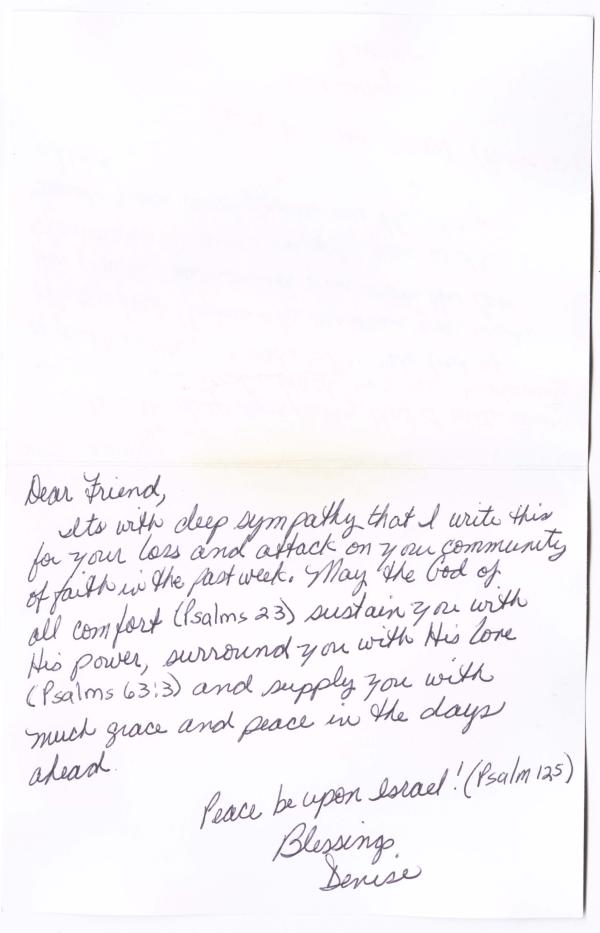 Dear Friend,
Its with deep sympathy that I write this
for your loss and attack on your community
of faith in the past week. May the God of
all comfort (Psalms 23) sustain you with
His power, surround you with His love
(Psalms 63:3) and supply you with
much grace and peace in the days
ahead.
Peace be upon Israel! (Psalm 125)
Blessings
Denise